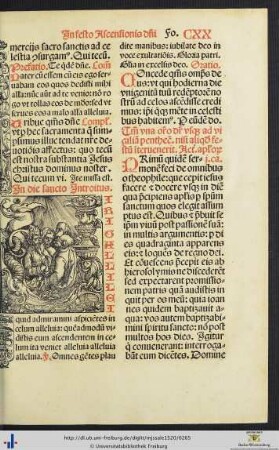 In festo Ascensionis dñi Fo. CXX
mercijs sacro sanctis ad ce
lestia ꝓsurgam⁹. Qui tecũ.
Prefatio. Te q̃ dñe. Com̃
Pater cũ essem cũ eis ego ser
uabam eos quos dedisti mihi
alleluia: nũc aũt ad te venio: nõ ro
go vt tollas eos de mũdo: sed vt
serues eos a malo alla alleluia
Tribue q̃s dñe Compl̃.
vt ꝑ hec sacramenta q̃ sum
psimus illuc tendat nr̃e de
uotiõis affectus: quo tecũ
est nostra substantia Jesus
christus dominus noster.
Qui tecum vi. Ite missa est.
In die sancto Introitus.
VIRI GALILEI
quid admiramini aspiciẽtes in
celum alleluia: quẽadmodũ vi
distis eum ascendentem in ce
lum ita veniet alleluia alleluia
alleluia. ps. Omnes gẽtes plau
dite manibus: iubilate deo in
voce exultatiõis. Gloria patri.
Gloria in excelsis deo. Oratio.
Concede q̃s om̃ps de⁹
vt qui hodierna die
vnigenitũ tuũ redẽptorẽ no
strũ ad celos ascẽdisse credi
mus: ip̃i q̃q mẽte in celesti
bus habitem⁹. P eũdẽ do.
Primũ quidẽ ser j.ca.
monẽ feci de omnibus
o theophile: que cepit iesus
facere & docere vsq̃ in diẽ
qua p̃cipiens apl̃is ꝑ spm̃
sanctum quos elegit assum
ptus est. Quibus & p̃buit se
ip̃m viuũ post passionẽ suã:
in multis argumentis: ꝑ di
es quadraginta apparens
eis: & loquẽs de regno dei.
Et cõuescens p̃cepit eis
ab hierosolymis ne discederẽt
sed expectarent promissio
nem patris quã audistis in
quit per os meũ: quia ioan
nes quidem baptizauit a
qua: vos autem baptizabi
mini spiritu sancto: nõ post
multos hos dies. Igitur
q̃ conuenerant: interroga
bãt eum dicẽtes. Domine
http://dl.ub.uni-freiburg.de/diglit/mjssale1520/0265
© Universitätsbibliothek Freiburg